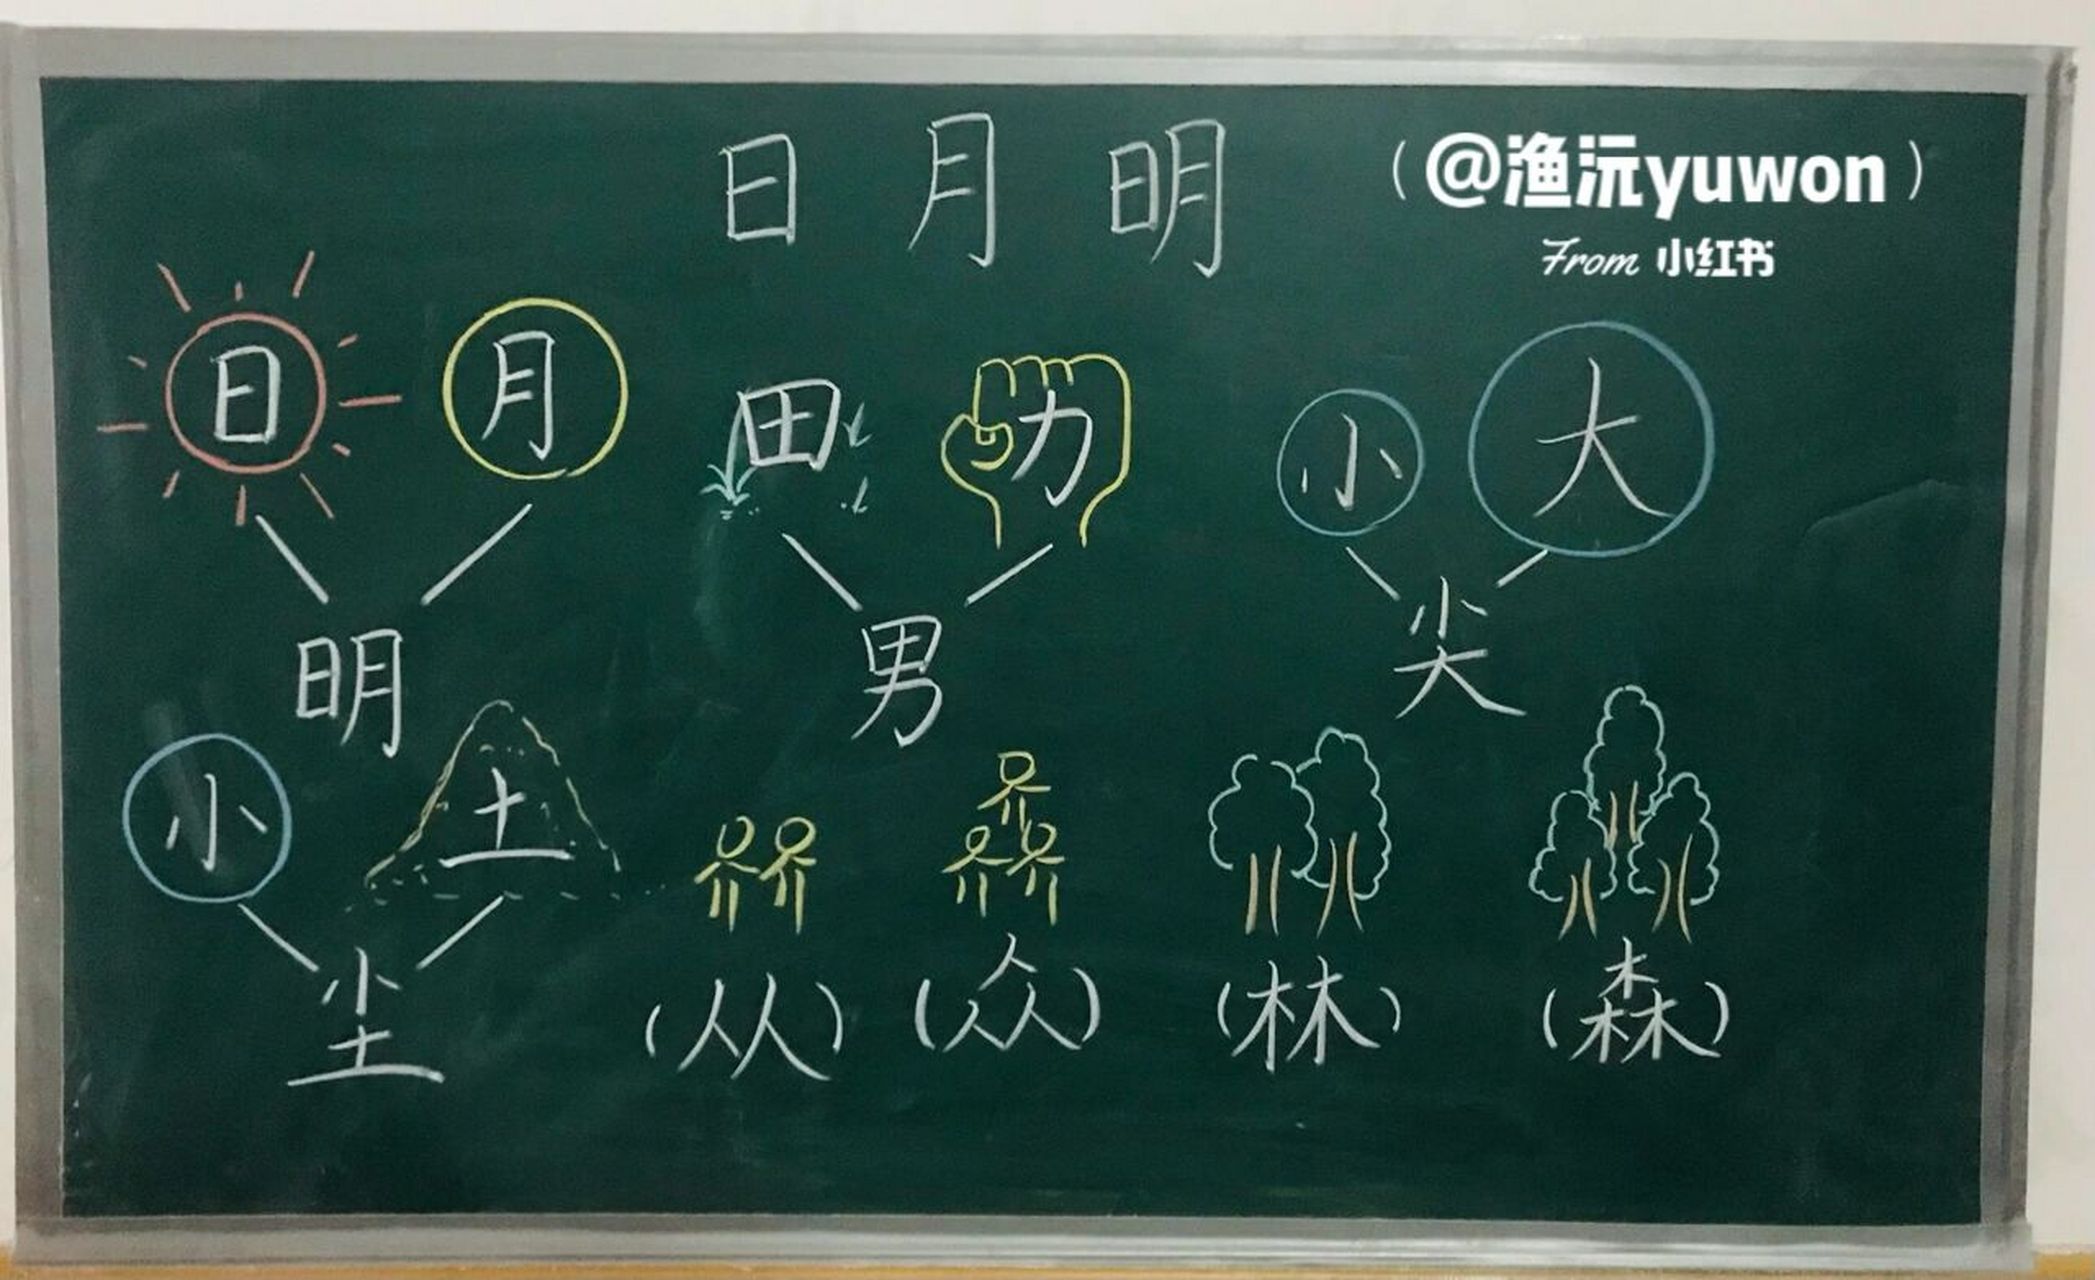 日 月 明
(@渔沅yuwon)
From 小红书
日 月 田 力 小 大
明 男 尖
小 土
尘 (从) (众) (林) (森)